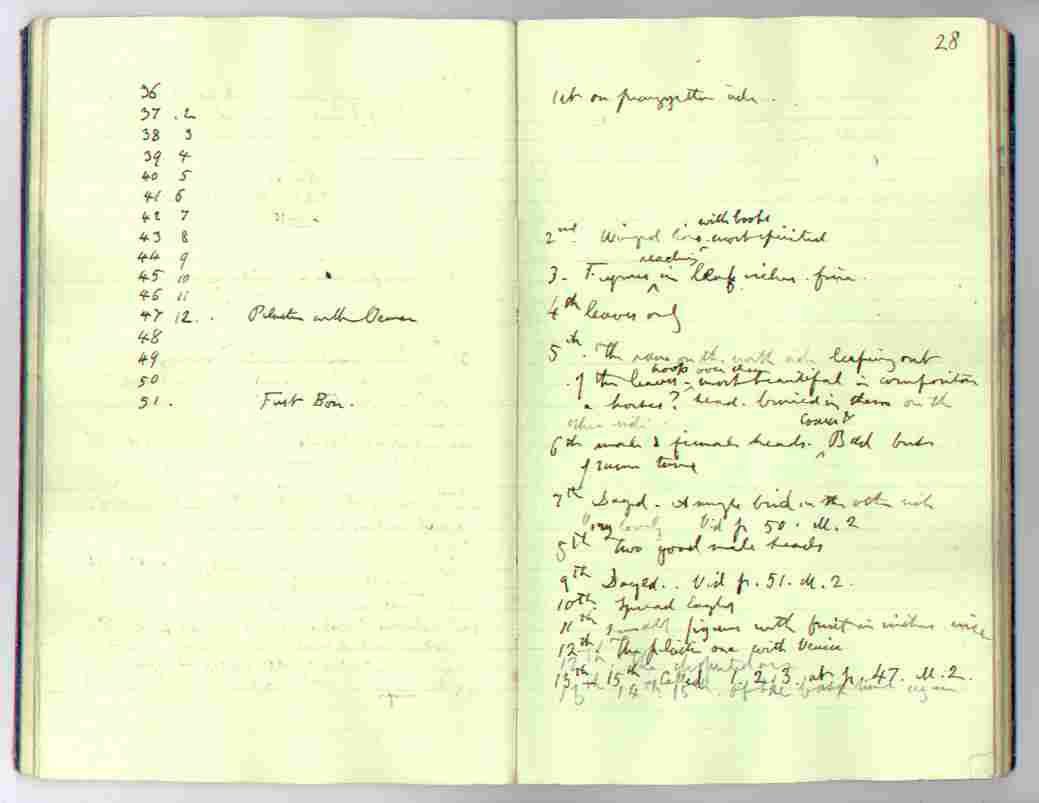 36
37 . 2
38 3
39 4
40 5
41 6
42 7
43 8
44 9
45 10
46 11
47 12. . with
48
49
50
51 . First Box.
28
1st on piazzetta side..
with book
2nd. Winged lion most spirited
reading
3. Figures in leaf niches. fine.
4th leaves only
5th. The same on the north side leaping out
hoop over them
of the leaves - most beautiful in composition
a horses? head. buried in them on the
other side.
Coarse &
6th male & female heads. Bad birds
same time
7th Dagd. A single bird on the other side
Very lovely Vid p 50. M. 2
8th two good male heads
9th Daged.. Vid p. 51. M. 2.
10th. Spread Eagles
11th small figures with fruit in niches nice
12th. The one with Venice
12th the
13th - 15th Called 1. 2. 3. at p. 47. M. 2.
13th 14th 15th. of the again